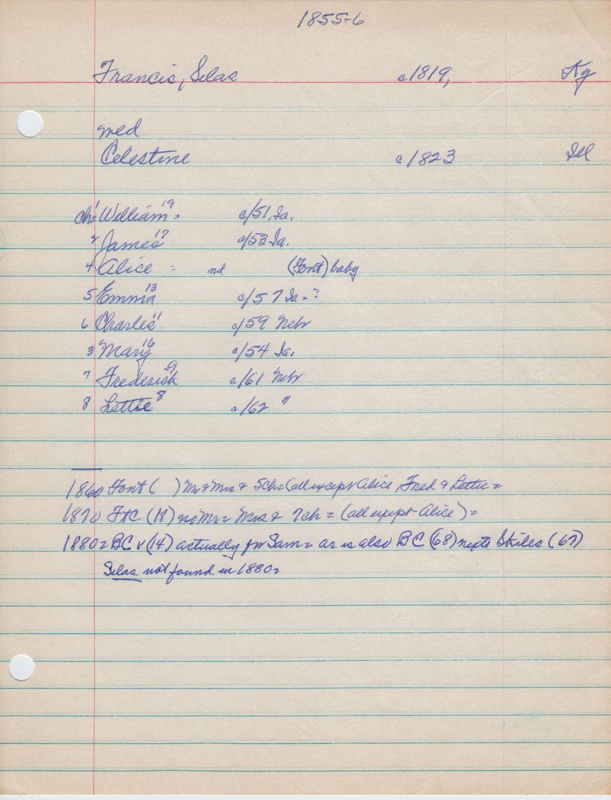 1855-6
Francis, Silas c1819, Ky
med
Celestine c1823 Ill
ch: 1 William 19 = c/51 Ia.
2 James 17 c/53 Ia.
4 Alice = nd (Font) baby
5 Emma 13 c/57 Ia = ?
6 Charles 11 c/59 Nebr
3 Mary 16 c/54 Ia.
7 Frederick 9 c/61 Nebr
8 Lettie 8 c/62 "
1860 Font ( ) Mr & Mrs & 5ch = (all except Alice, Fred & Lettie =
1870 FtC (11) no Mr = Mrs & 7ch = (all except Alice) =
1880 = BC v (14) actually for Sam = as is also BC (68) next Skiles (67)
Silas not found in 1880 =